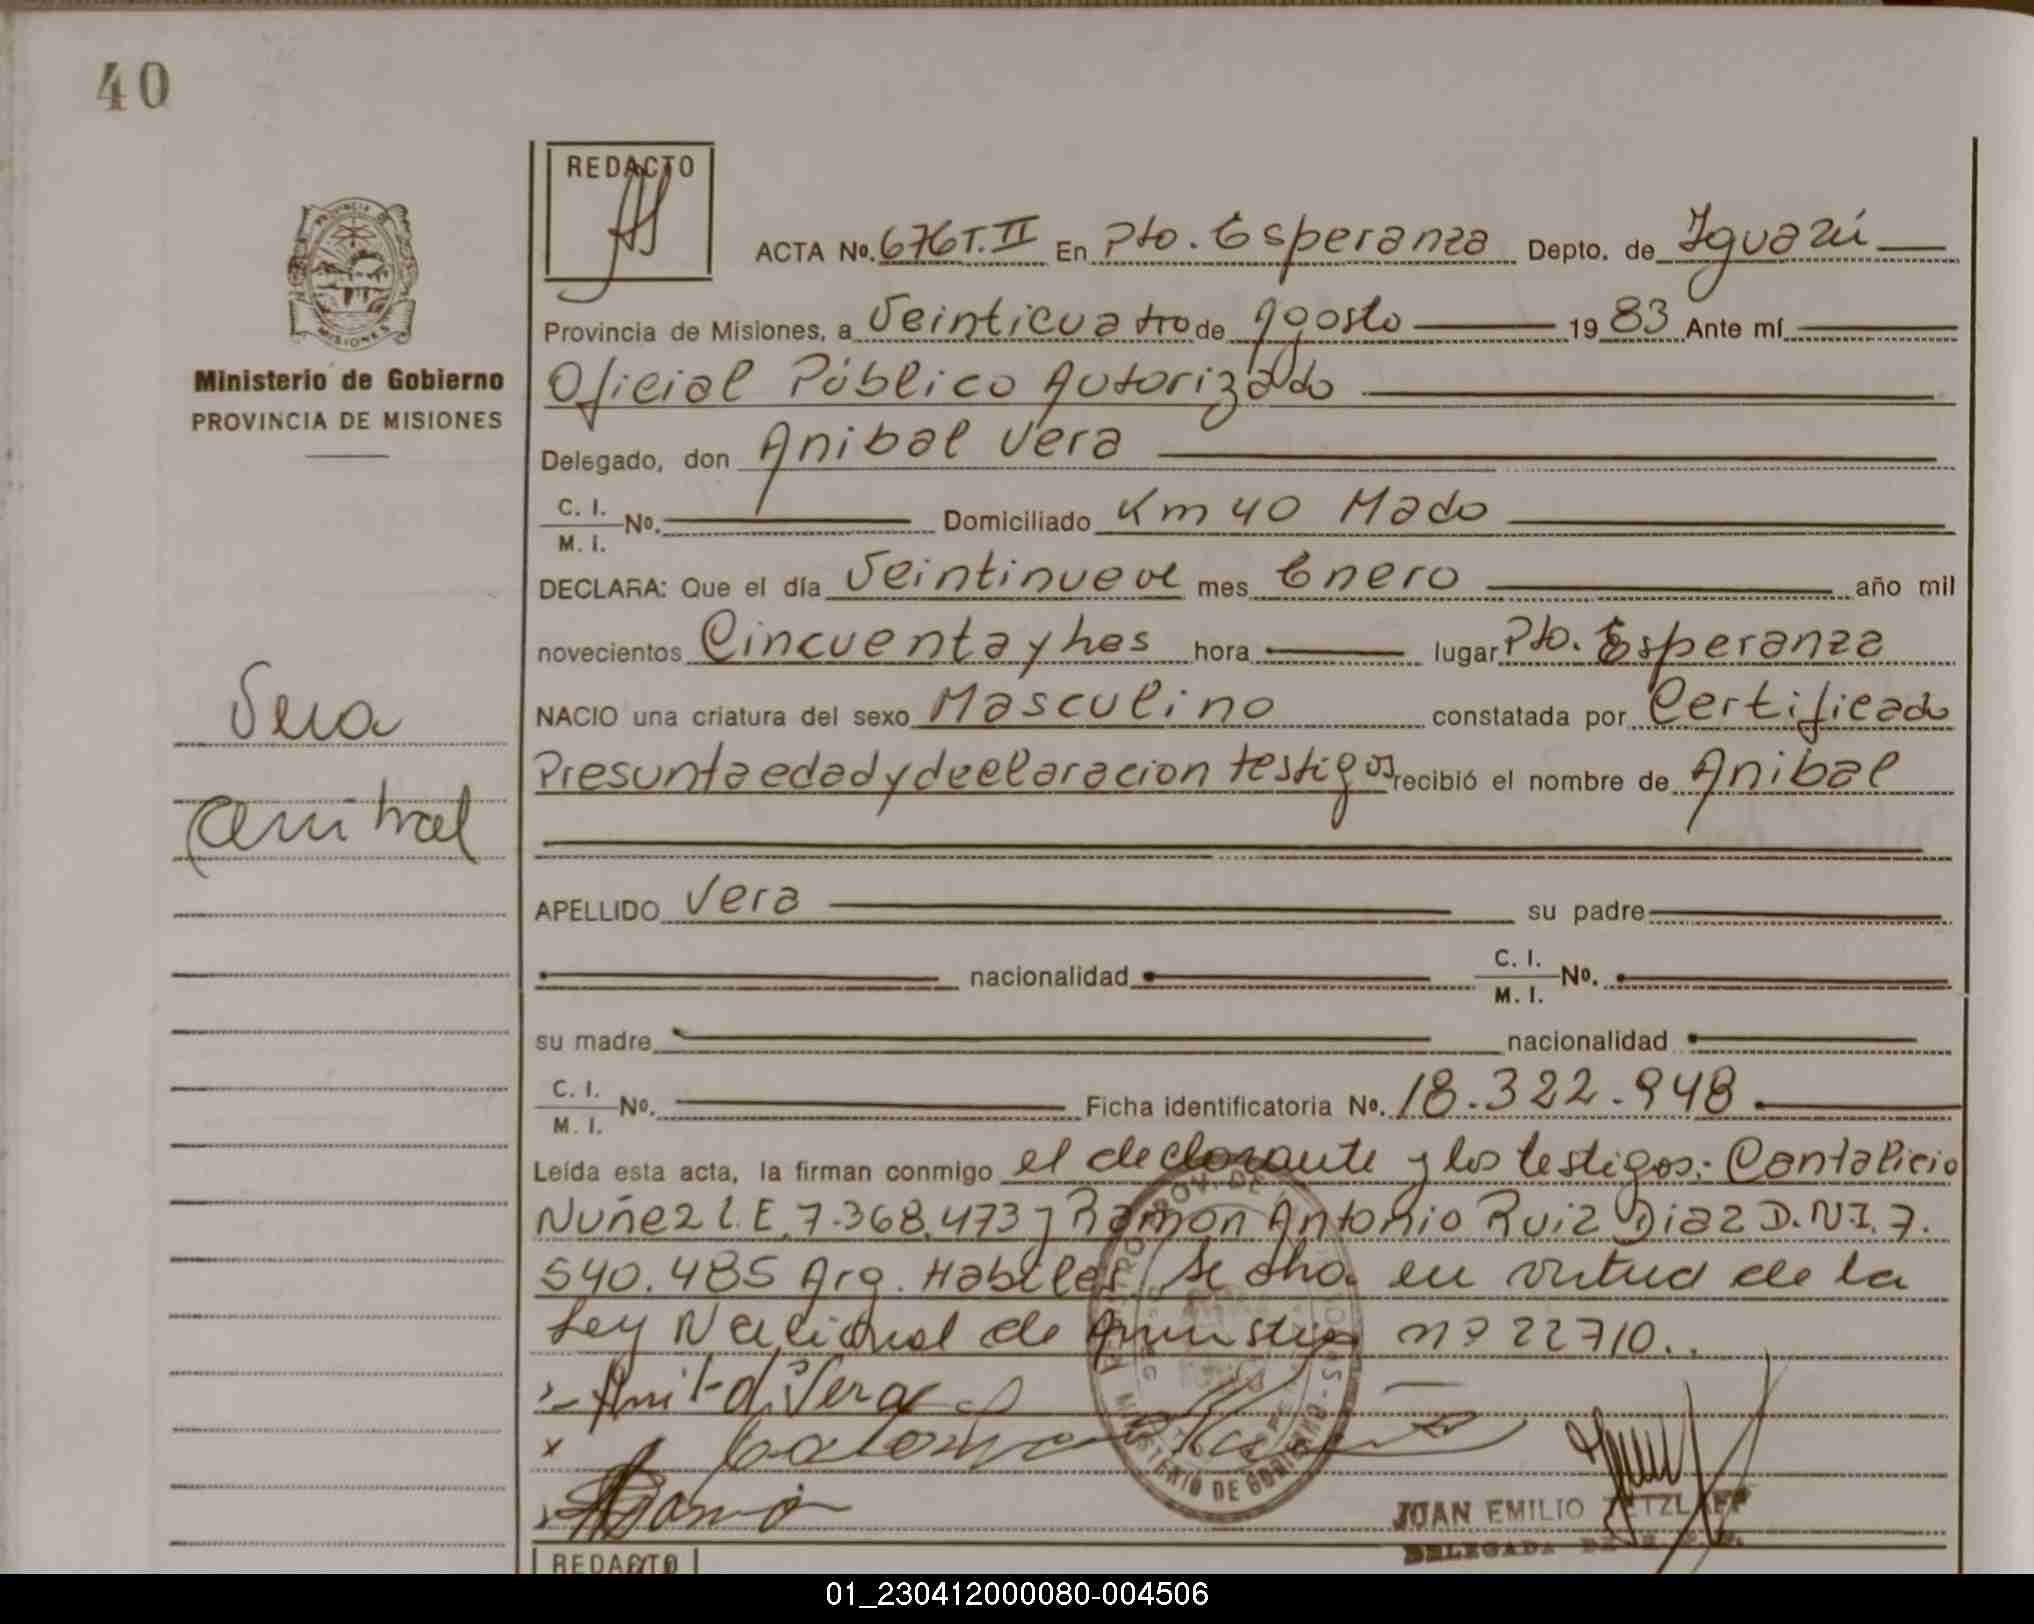 40
REDACTO
ACTA No. 676 T. II En Pto. Esperanza Depto. de Iguazú
Provincia de Misiones, a Veinticuatro de Agosto 19 83 Ante mí
Ministerio de Gobierno
PROVINCIA DE MISIONES
Oficial Público Autorizado
Delegado, don Anibal Vera
C. I.
M. I. No. Domiciliado Km 40 Mado
DECLARA: Que el día Veintinueve mes Enero año mil
novecientos Cincuenta y tres hora lugar Pto. Esperanza
Vera
Anibal
NACIO una criatura del sexo Masculino constatada por Certificado
Presunta edad y declaracion testigos recibió el nombre de Anibal
APELLIDO Vera su padre
nacionalidad C. I.
M. I. No.
su madre nacionalidad
C. I.
M. I. No. Ficha identificatoria No. 18.322.948
Leída esta acta, la firman conmigo el declarante y los testigos: Cantalicio
Nuñez L.E. 7.368.473 y Ramon Antonio Ruiz Diaz D.N.I. 7.
540.485 Arg. Habiles. Se ofna. en virtud de la
Ley Nacional de Amnistia nº 22710..
Anibal Vera
JUAN EMILIO
DELEGADA
MINISTERIO DE GOBIERNO
REDACTO
01_230412000080-004506